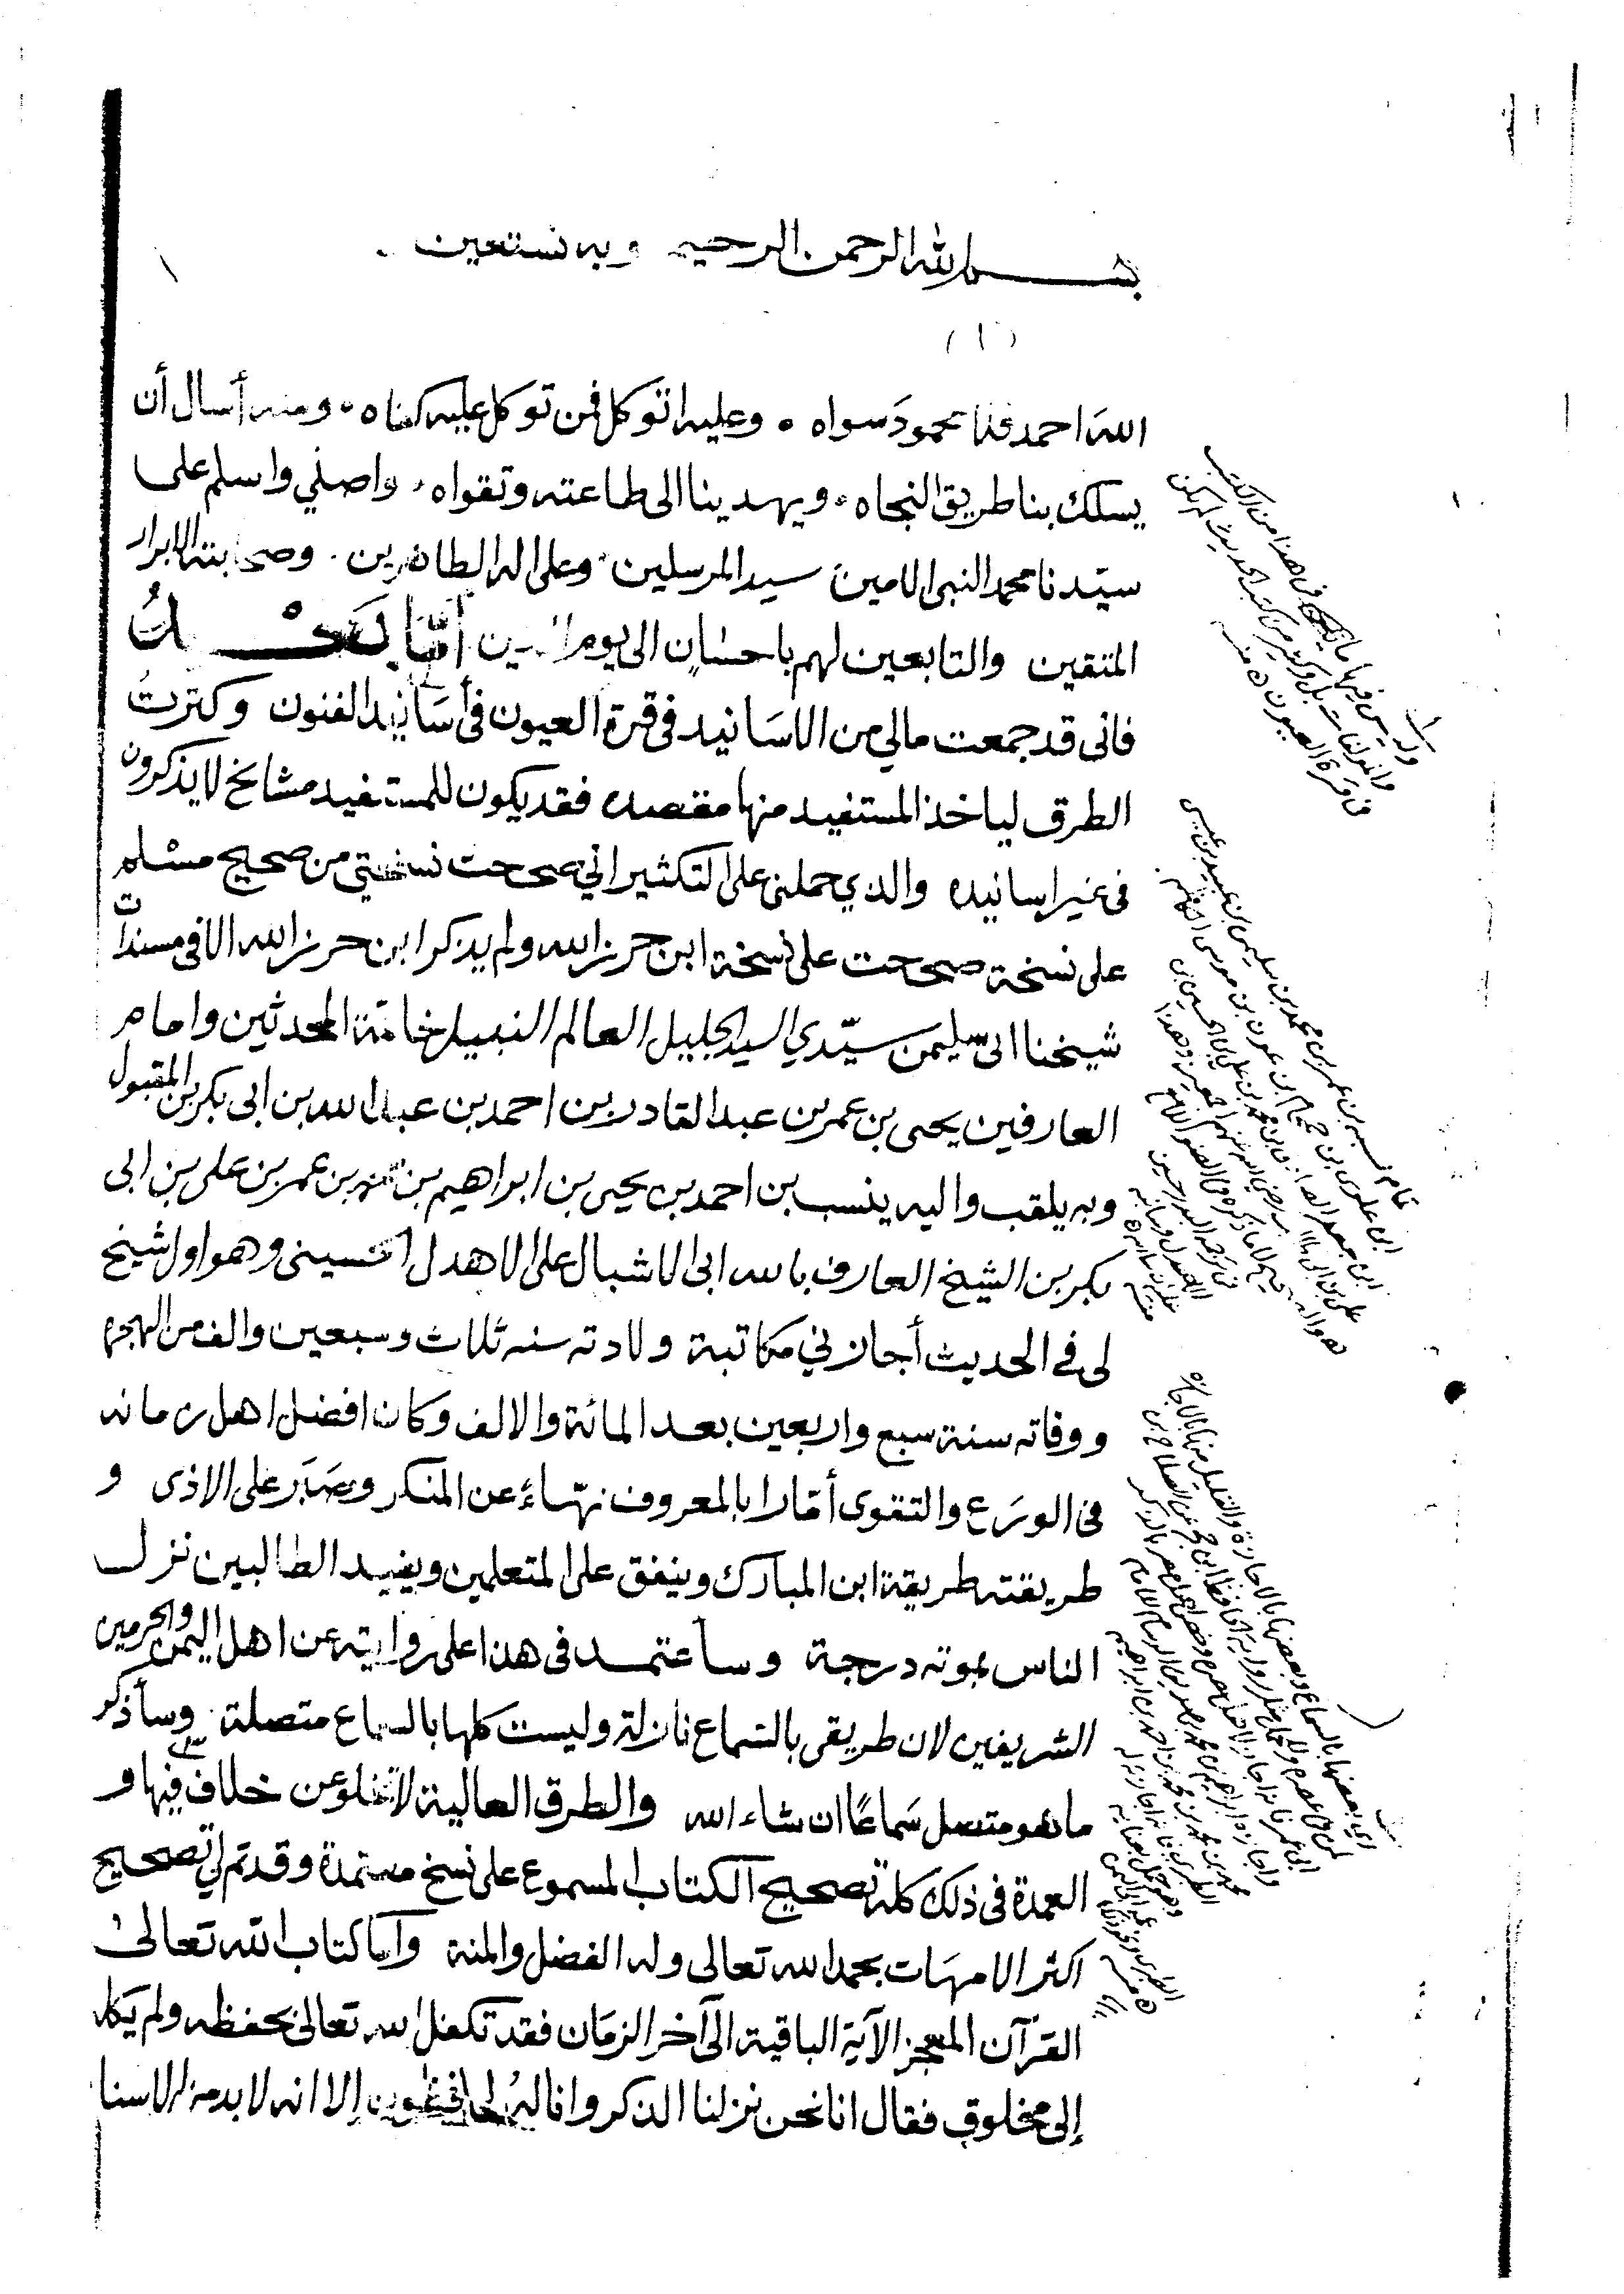 بسم الله الرحمن الرحيم وبه نستعين
(١)
الله احمد فما محمود سواه ٠ وعليه اتوكل فمن توكل عليه كفاه ٠ ومنه أسال أن
يسلك بنا طريق النجاه ٠ ويهدينا الى طاعته وتقواه ٠ واصلي واسلم على
سيّدنا محمد النبي الامين سيد المرسلين ٠ وعلى اله الطاهرين ٠ وصحابته الابرار
المتقين والتابعين لهم باحسَان الى يوم الدين أمّا بَعْدُ
فانى قد جمعت مالي من الاسَانيد في قرة العيون في أسَانيد الفنون وكثرتُ
الطرق لياخذ المستفيد منها مقصده فقد يكون للمستفيد مشائخ لا يذكرون
في غير اسانيده والذي حملنى على التكثير اني صححت نسختي من صحيح مسلم
على نسخة صححت على نسخة ابن حرز الله ولم يذكر ابن حرز الله الا في مسندات
شيخنا ابى سليمن سيّدي السيد الجليل العالم النبيل خاتمة المحدثين وامام
العارفين يحيى بن عمر بن عبد القادر بن احمد بن عبد الله بن ابى بكر بن المقبول
وبه يلقب واليه ينسب بن احمد بن يحيى بن ابراهيم بن محمد بن عمر بن على بن ابى
بكر بن الشيخ العارف بالله ابى الاشبال على الاهدل الحسينى وهو اول شيخ
لى فى الحديث أجازني مكاتبة ولادته سنه ثلاث وسبعين والف من الهجرة
ووفاته سنة سبع واربعين بعد المائة والالف وكان افضل اهل زمانه
فى الورَع والتقوى أمّارا بالمعروف نهّاءً عن المنكر وصَبَر على الاذى و
طريقته طريقة ابن المبارك وينفق على المتعلمين ويفيد الطالبين نزل
الناس بموته درجة وسأعتمد في هذا على روايته عن اهل اليمن والحرمين
الشريفين لان طريقى بالسّماع نازلة وليست كلها بالسماع متصلة وسأذكر
ما هو متصل سَماعًا ان شاء الله والطرق العالية لا تخلو عن خلاف فيها و
العمدة فى ذلك كله تصحيح الكتاب المسموع على نسخ معتمدة وقد تم لي تصحيح
اكثر الامهَات بحمد الله تعالى وله الفضل والمنة وأما كتاب الله تعالى
القرآن المعجز الآية الباقية الى آخر الزمَان فقد تكفل الله تعالى بحفظه ولم يكله
إلى مخلوق فقال انا نحن نزلنا الذكر وانا لهُ لحافظون إلا انه لا بد من الاسنا
وليس فيها ما في هذا من الكتب
والمؤلفات بل وكثير من كتب الحديث لم يكن
في قرة العيون
تمام نسبه بن عمر بن محمد بن سليمن بن عبيد بن عيسى
ابن علوى بن حمحام بن عون بن موسى الكاظم